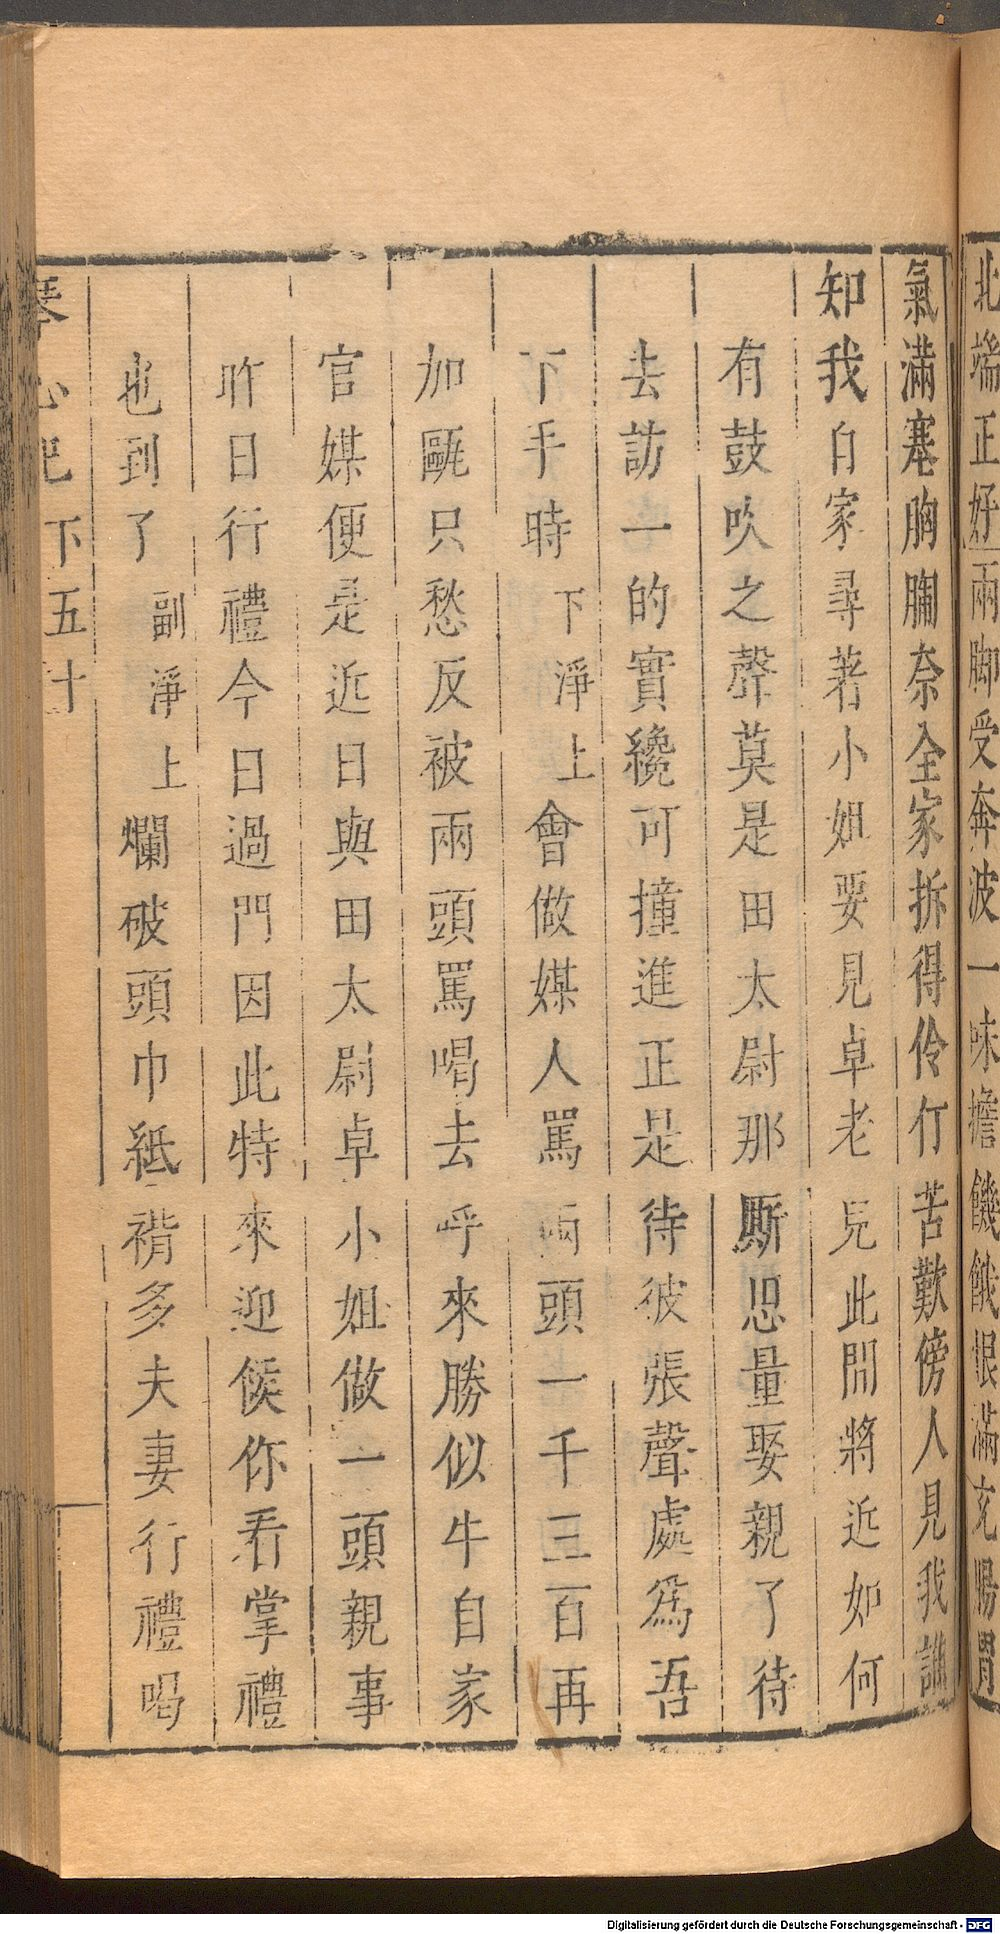 北端正好兩脚受奔波一味擔饑餓恨滿充腸胃
氣滿塞胸膈奈全家拆得伶仃苦歎傍人見我誰
知我自家尋著小姐要見卓老兒此間將近如何
有鼓吹之聲莫是田太尉那厮思量娶親了待
去訪一的實纔可撞進正是待彼張聲處爲吾
下手時下淨上會做媒人罵兩頭一千三百再
加甌只愁反被兩頭罵喝去呼來勝似牛自家
官媒便是近日與田太尉卓小姐做一頭親事
昨日行禮今日過門因此特來迎候你看掌禮
也到了副淨上爛破頭巾紙褙多夫妻行禮喝
琴心記下五十
Digitalisierung gefördert durch die Deutsche Forschungsgemeinschaft - DFG